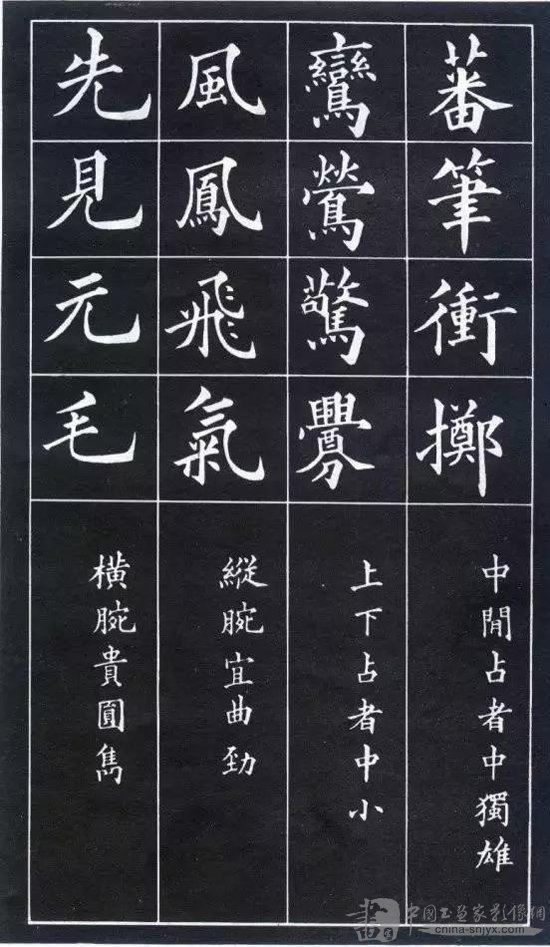 蕃筆衝擲
中閒占者中獨雄
鸞鶯驚釁
上下占者中小
風鳳飛氣
縱腕宜曲勁
先見元毛
橫腕貴圓雋
中国书画家影像網
china-snjyx.com